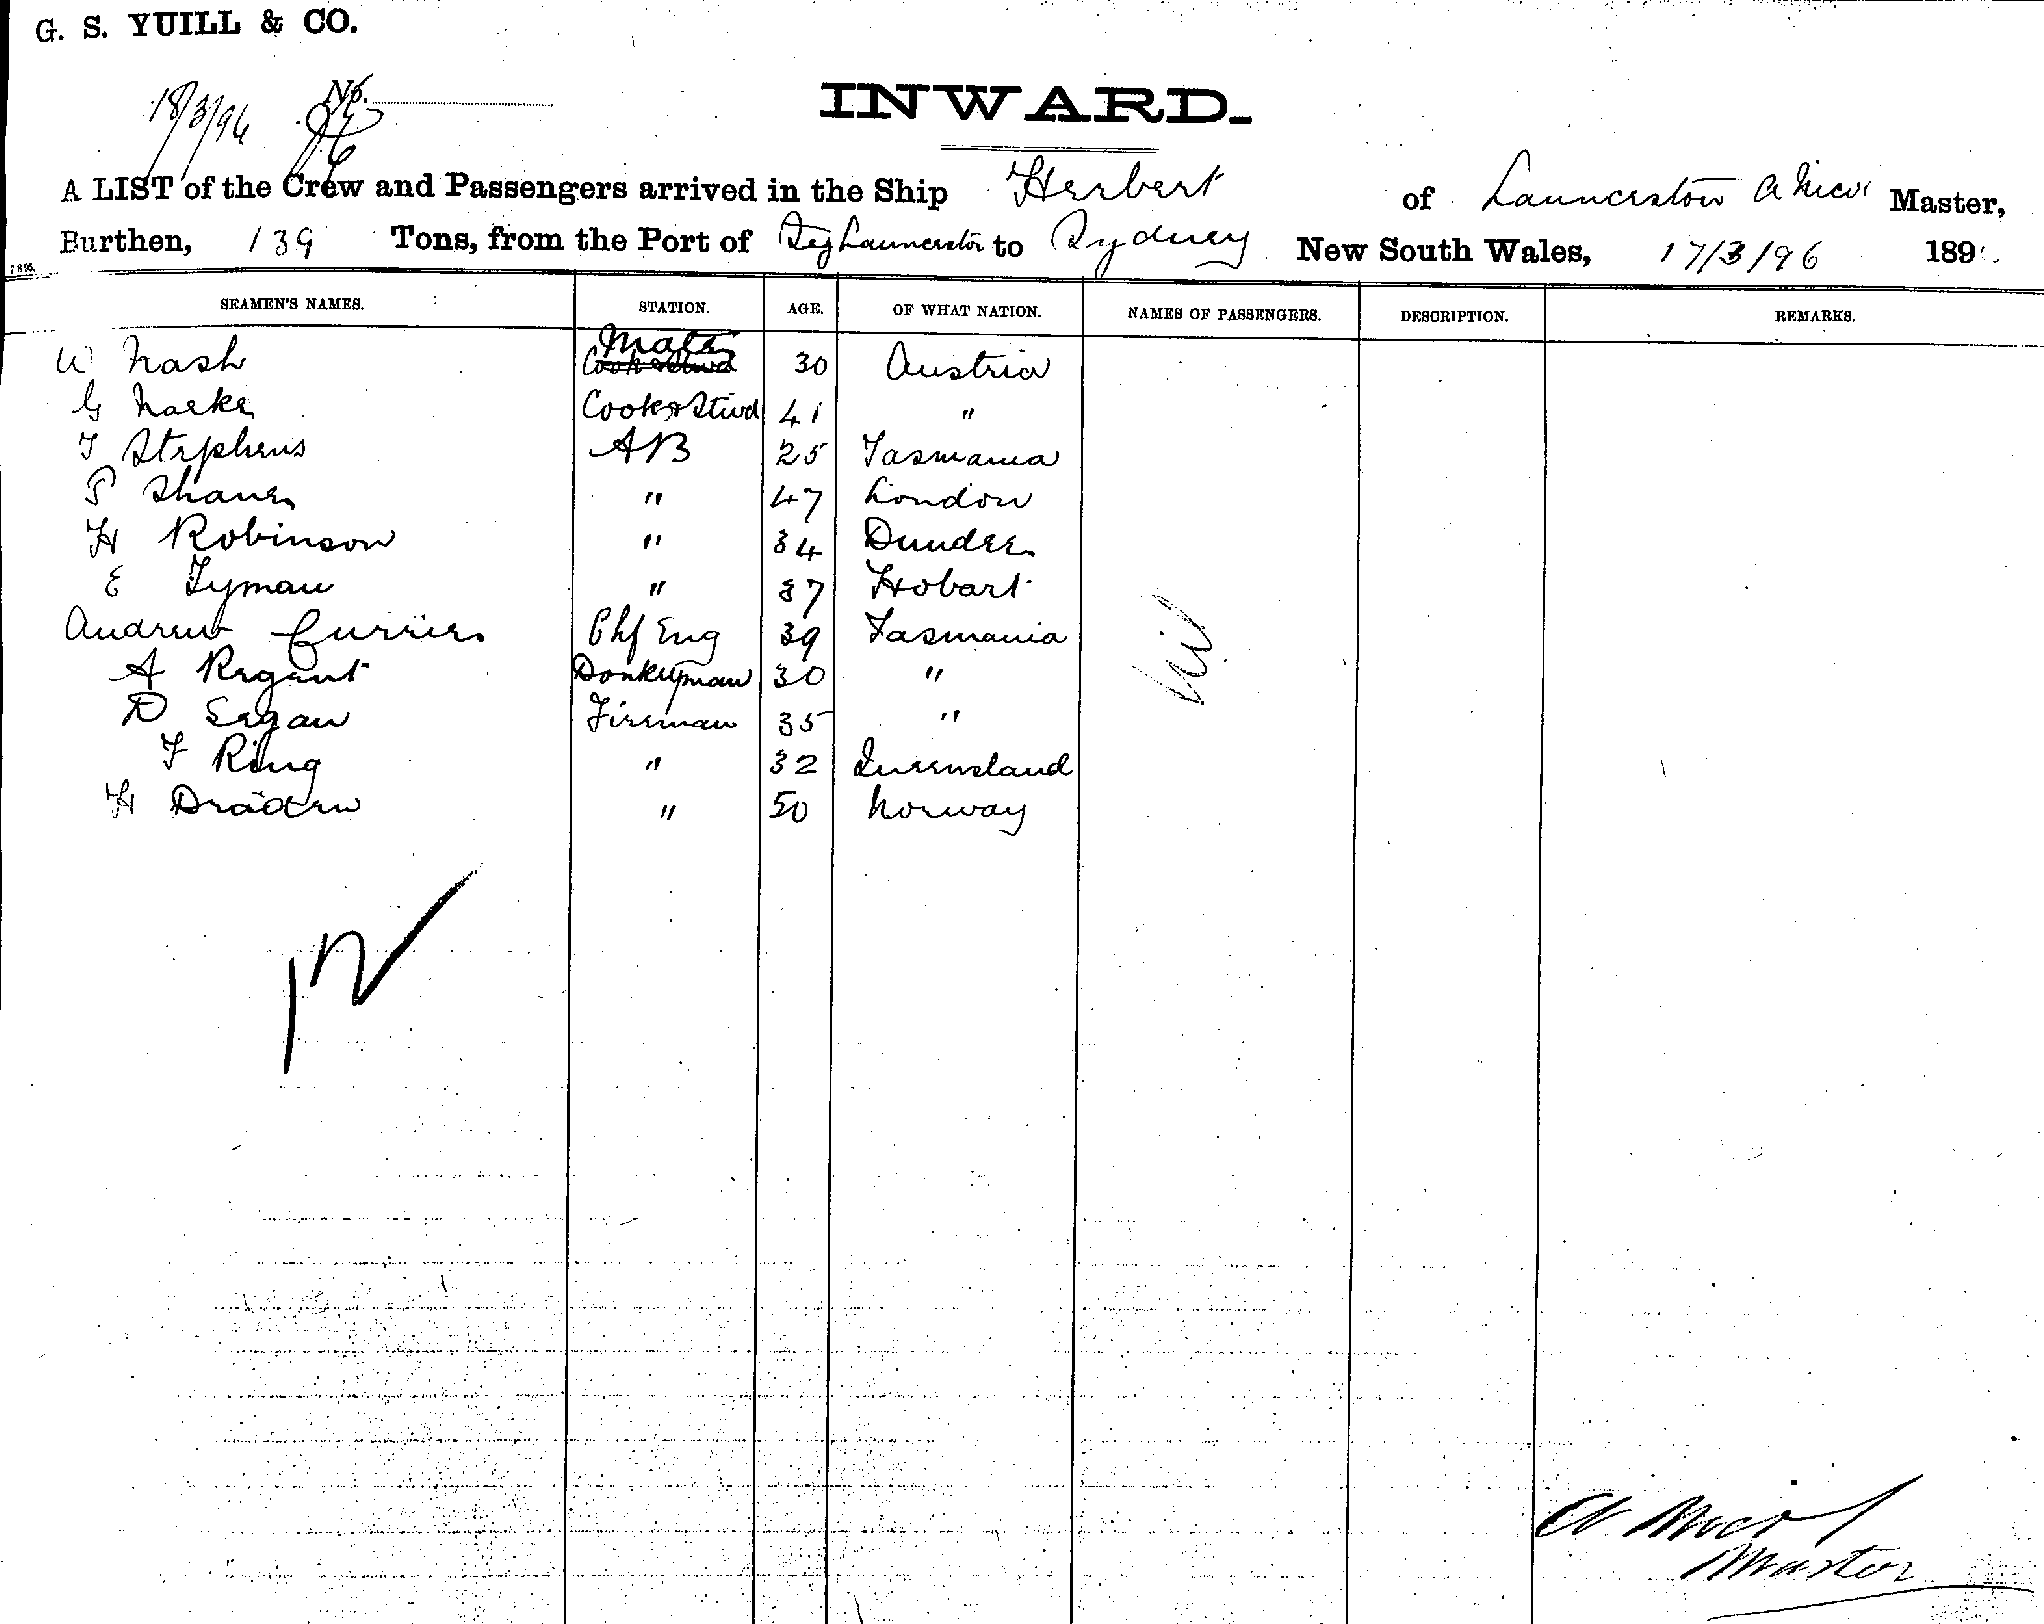 G. S. YUILL & CO.
18/3/96 No.
INWARD.
A LIST of the Crew and Passengers arrived in the Ship Herbert of Launceston A Nicol Master,
Burthen, 139 Tons, from the Port of Launceston to Sydney New South Wales, 17/3/96 189
SEAMEN'S NAMES. STATION. AGE. OF WHAT NATION. NAMES OF PASSENGERS. DESCRIPTION. REMARKS.
W Nash Mate 30 Austria
G 41 "
Cook & Stwd
T Stephens AB 25 Tasmania
P " 47 London
H Robinson " 34 Dundee
E Tyman " 37 Hobart
Andrew Currier Chf Eng 39 Tasmania
A Regent Donkeyman 30 "
D Eagan Fireman 35 "
F Ring " 32 Queensland
H " 50 Norway
Nil
12
A Nicol
Master